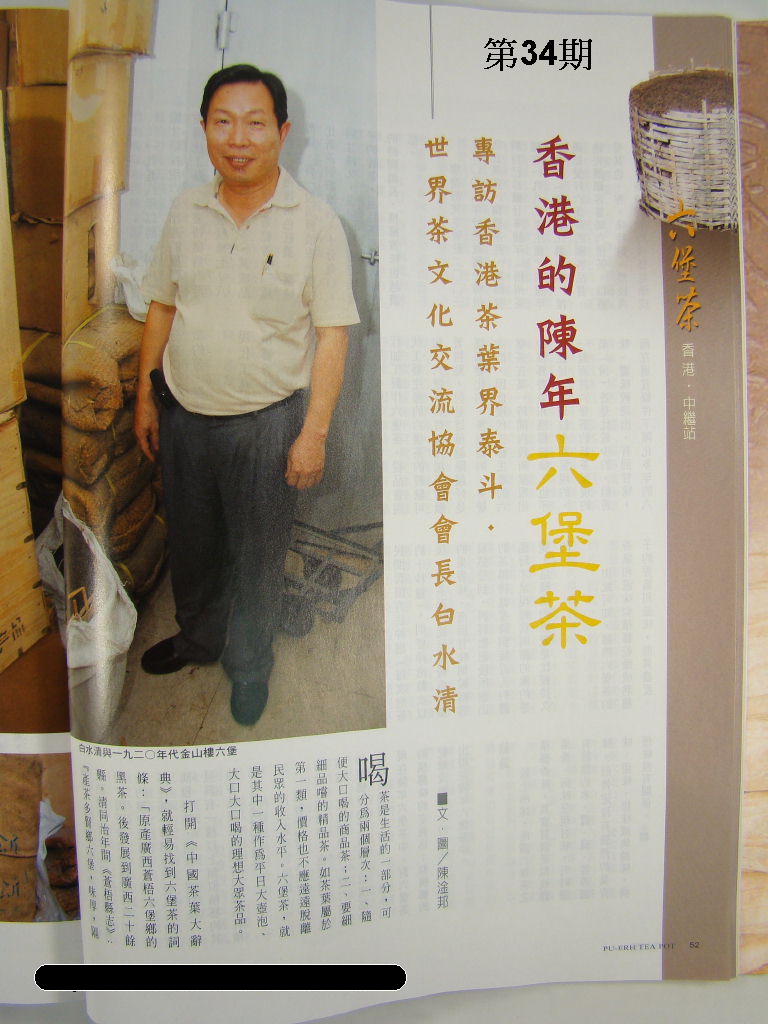 第34期
六堡茶
香港·中繼站
香港的陳年六堡茶
專訪香港茶葉界泰斗·
世界茶文化交流協會會長白水清
■文·圖／陳淦邦
白水清與一九二〇年代金山樓六堡
喝茶是生活的一部分，可
分為兩個層次：一、隨
便大口喝的商品茶；二、要細
細品嚐的精品茶。如茶葉屬於
第一類，價格也不應遠遠脫離
民眾的收入水平。六堡茶，就
是其中一種作為平日大壺泡、
大口大口喝的理想大眾茶品。
打開《中國茶葉大辭
典》，就輕易找到六堡茶的詞
條：「原產廣西蒼梧六堡鄉的
黑茶。後發展到廣西二十餘
縣。清同治年間《蒼梧縣志》：
『產茶多賢鄉六堡，味厚，隔
PU-ERH TEA POT 52